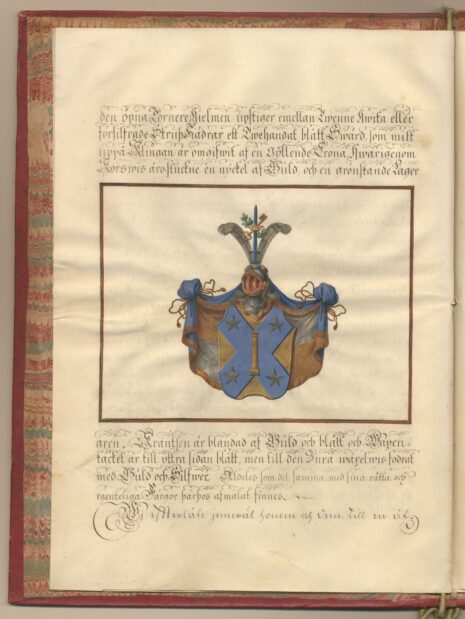 den öpna Tornere Hielmen upstiger emellan Twenne Hwita eller
försilfrade Struss-Fiädrar ett Twehandat blått Swärd, som mitt
uppå Klingan är omgifwit af en Gyllende Crona, Hwarigenom
Korswis äro stuckne en nyckel af Guld och en grönskande Lager
green. Krantsen är blandad af Guld och blått och Wapen-
täcket är till yttra sidan blått, men till den Inra wäxelwis fodrat
med Guld och Silfwer. Aldeles som det samma med sina rätta och
egenteliga Färgor härhos afmålat finnes.
honom och dem till